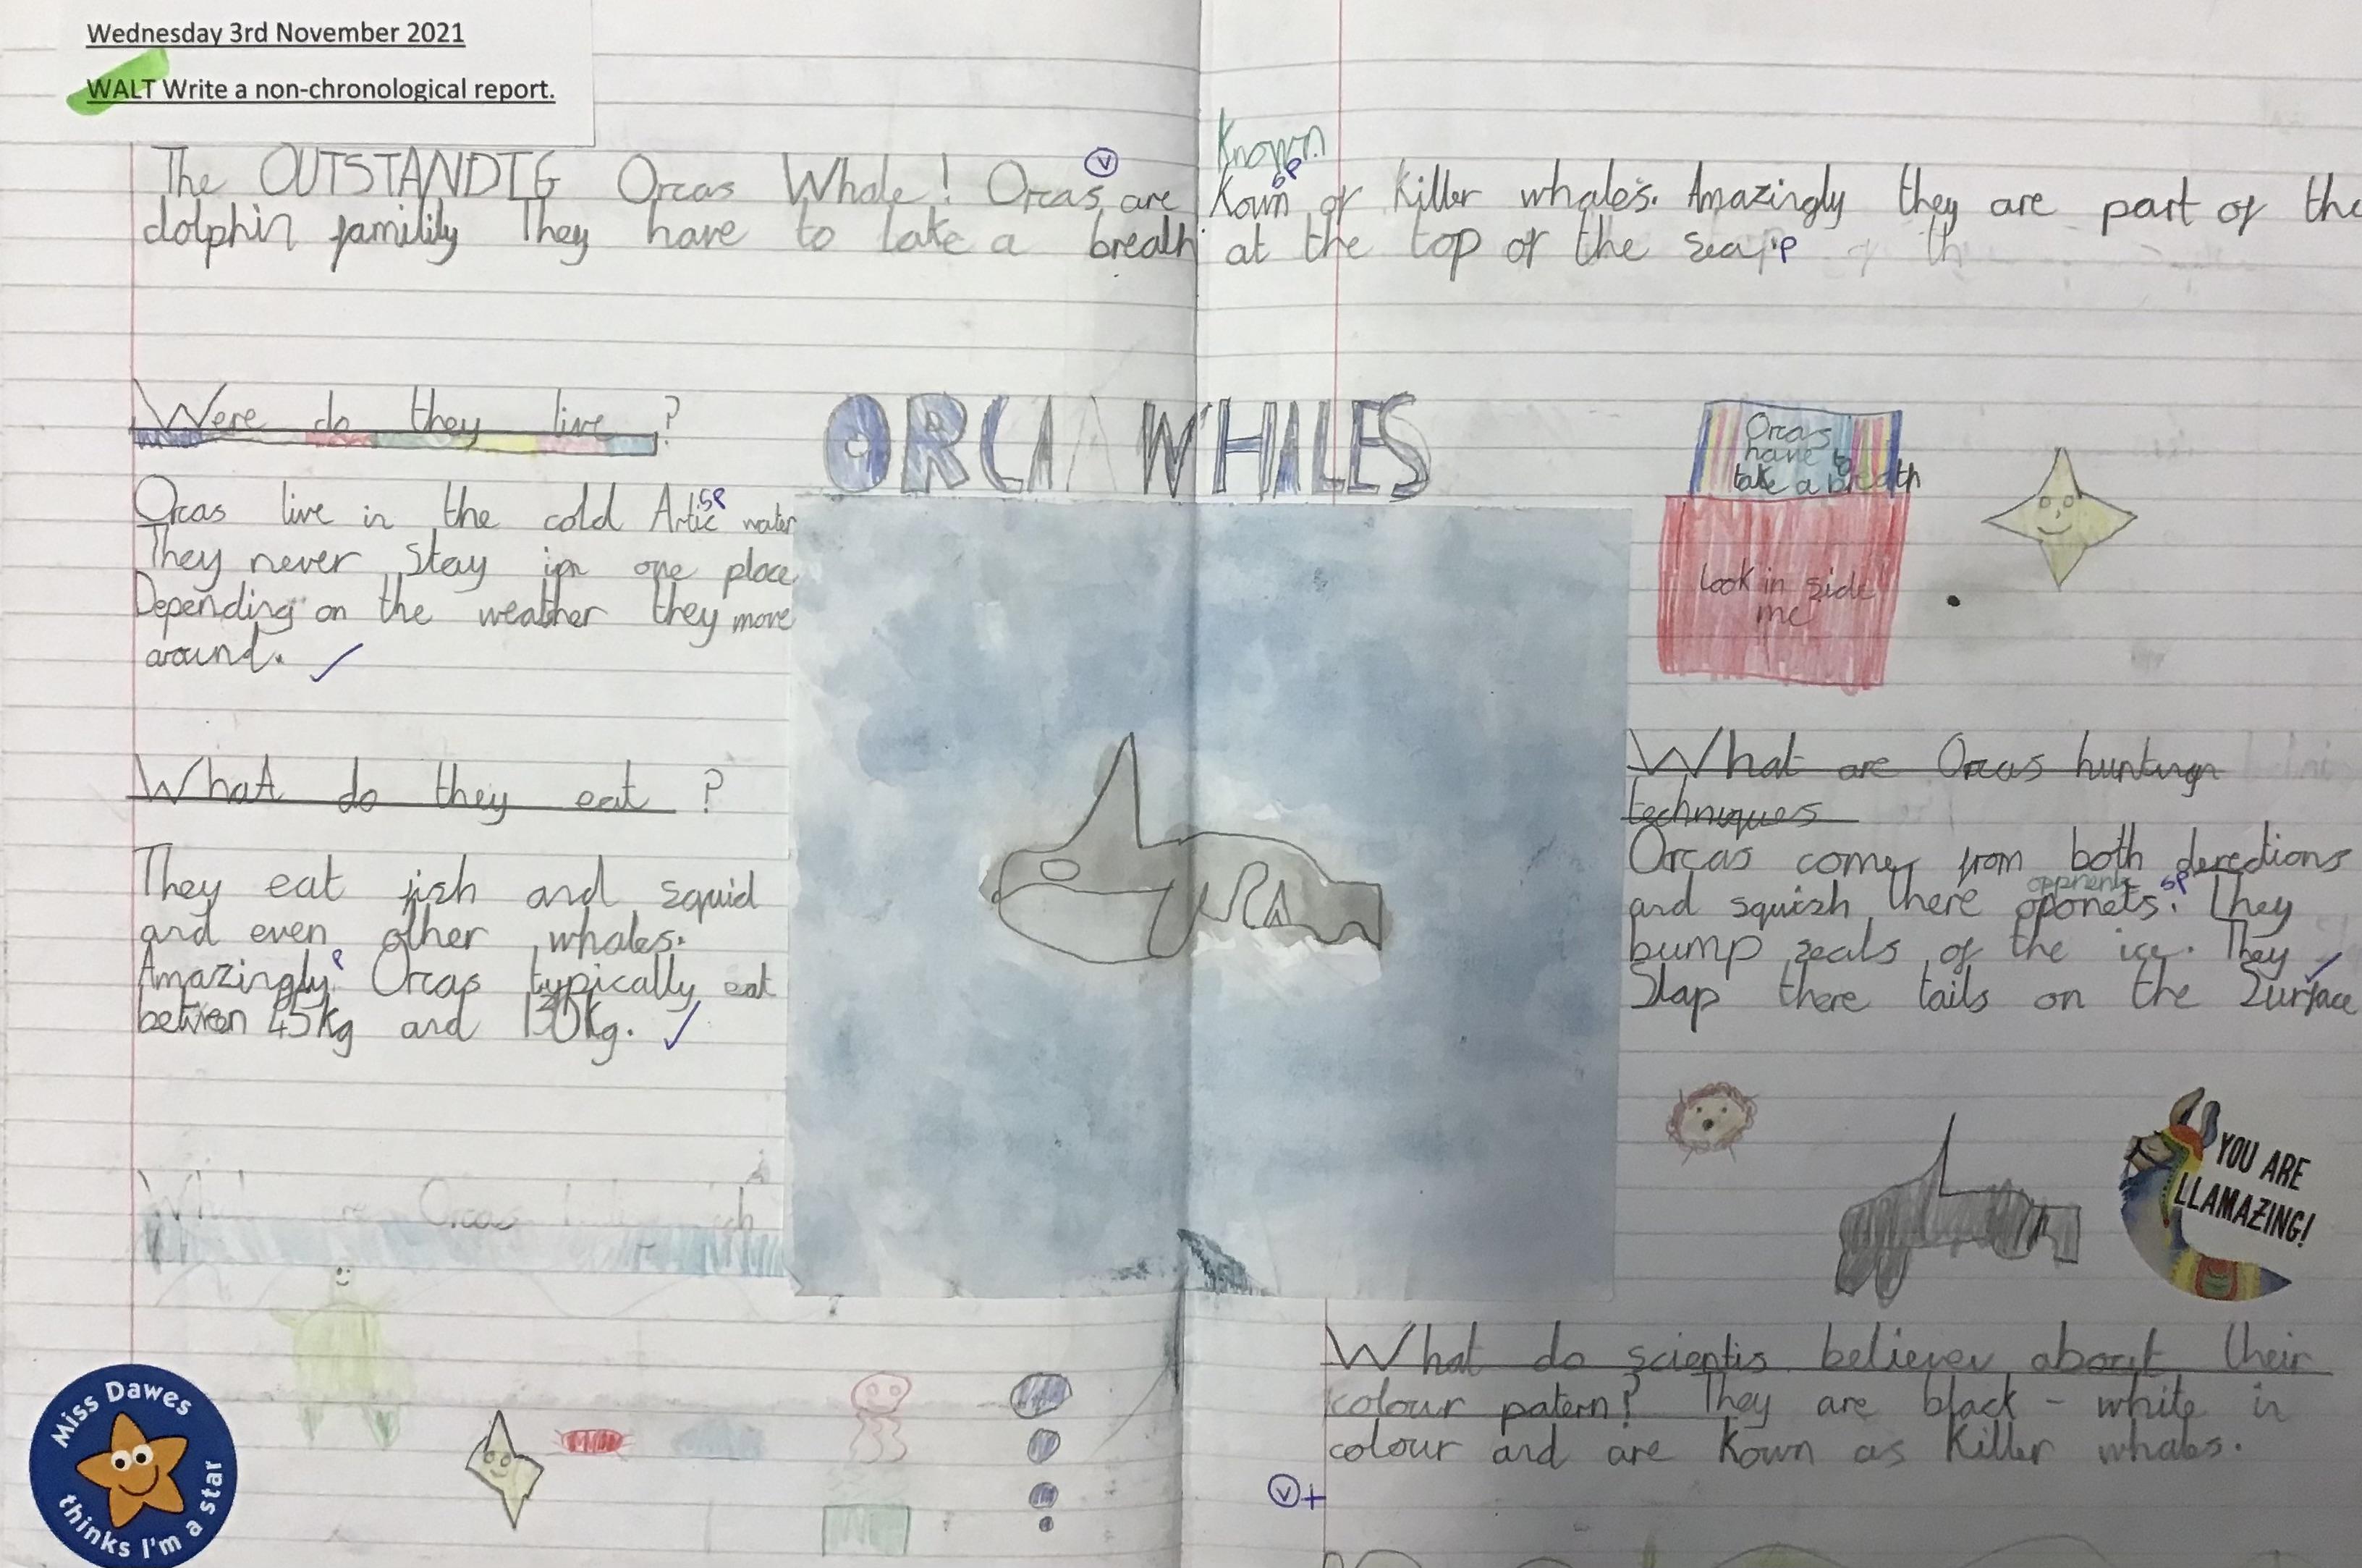 Wednesday 3rd November 2021
WALT Write a non-chronological report.
Known
The OUTSTANDIG Orcas Whale! Orcas are Kown of Killer whales. Amazingly they are part of the
dolphin familily They have to take a breath at the top of the sea
ORCA WHALES
Were do they live ?
Orcas live in the cold Artic water
They never stay in one place
Depending on the weather they move
around.
What do they eat ?
They eat fish and squid
and even other whales.
Amazingly Orcas typically eat
between 45kg and 130kg.
Orcas
Miss Dawes
thinks I'm a star
Orcas
have to
take a breath
look in side
me
What are Orcas hunting
techniques
Orcas come from both derections
and squish there oponets. They
bump seals of the ice. They
Slap there tails on the Surface
YOU ARE
LLAMAZING!
What do scientis believe about their
colour patern? They are black - white in
colour and are Kown as Killer whales.